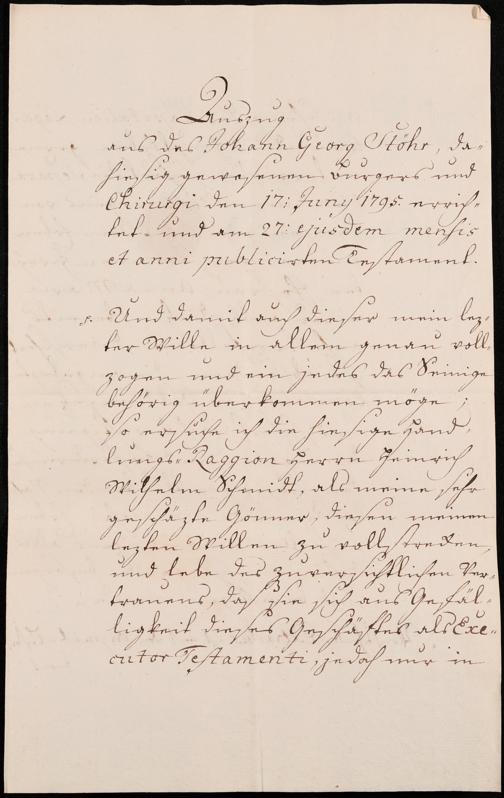 Auszug
aus des Johann Georg Stöhr, da-
hiesig gewesenen Burgers und
Chirurgi den 17: Juny 1795. errich-
tet- und am 27: ejusdem mensis
et anni publicirten Testament.
Und damit auch dieser mein lez-
ter Wille in allem genau voll-
zogen und ein jedes das Seinige
behörig überkommen möge;
so ersuche ich die hiesige Hand-
lungs-Raggion Herrn Heinrich
Wilhelm Schmidt, als meine sehr
geschäzte Gönner, diesen meinen
lezten Willen zu vollstrecken,
und lebe des zuversichtlichen Ver-
trauens, daß sie sich aus Gefäl-
ligkeit dieses Geschäftes als Exe-
cutor Testamenti, jedoch nur in